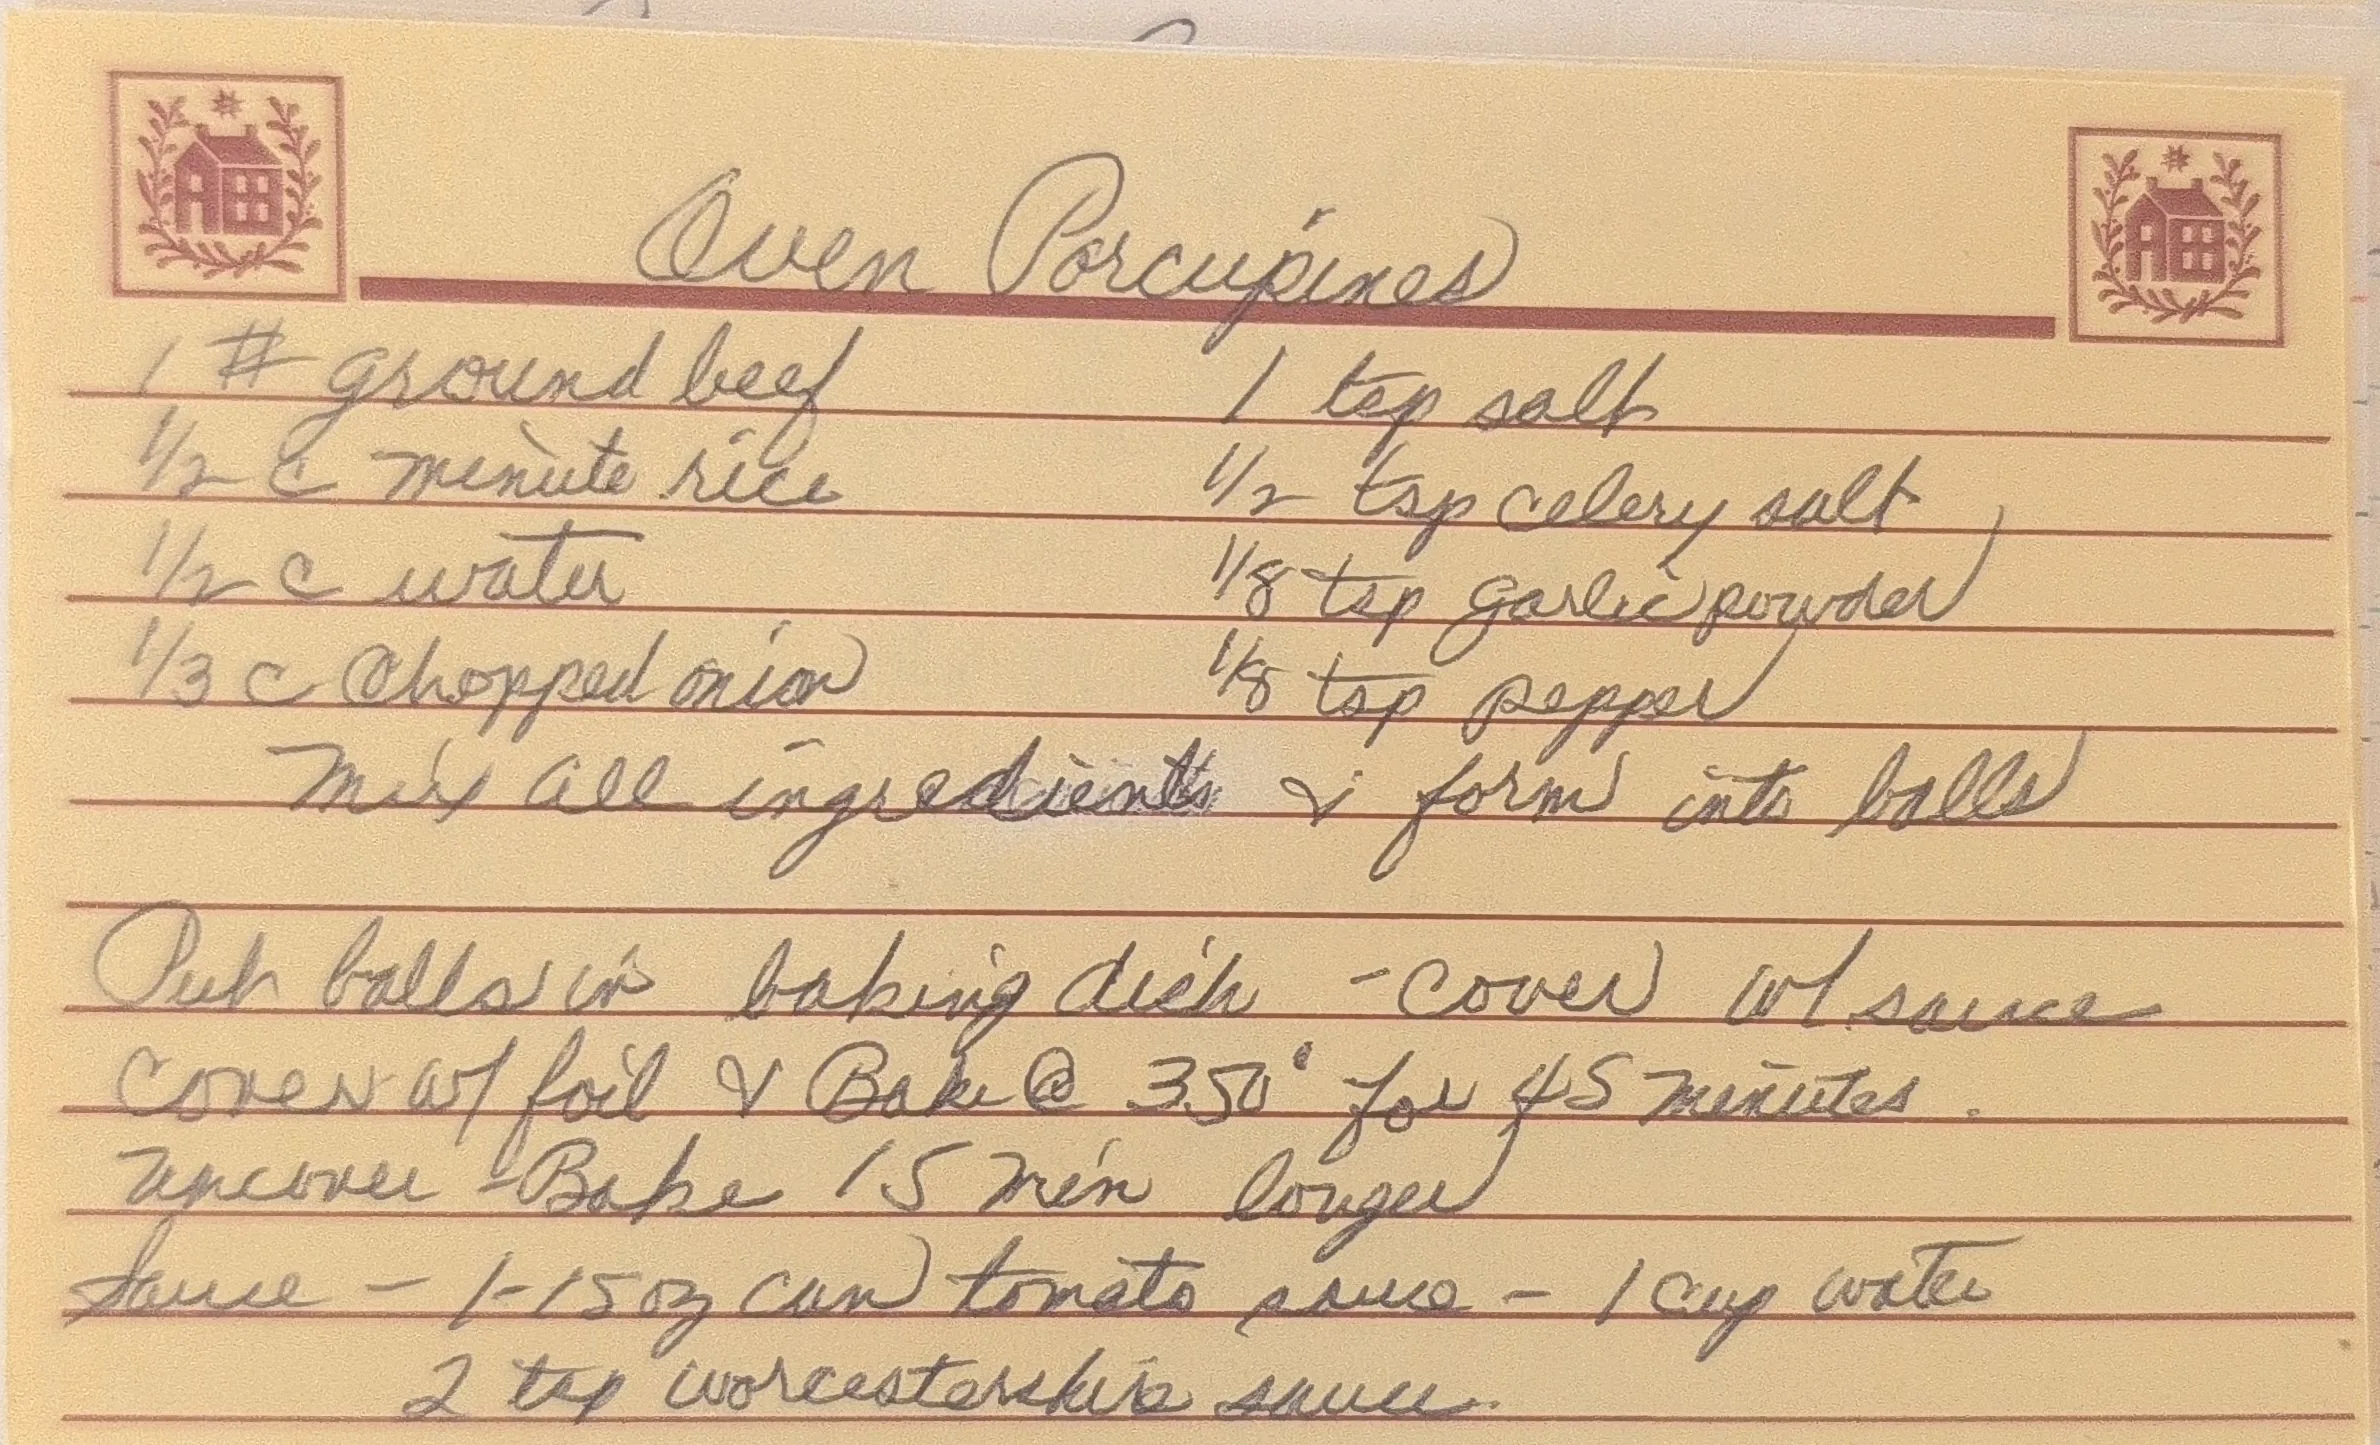 Oven Porcupines
1 # ground beef
1/2 c minute rice
1/2 c water
1/3 c Chopped onion
1 tsp salt
1/2 tsp celery salt
1/8 tsp garlic powder
1/8 tsp pepper
Mix all ingredients & form into balls
Put balls in baking dish - cover w/ sauce
cover w/ foil & Bake @ 350° for 45 minutes.
uncover - Bake 15 min longer
Sauce - 1-15 oz can tomato sauce - 1 cup water
2 tsp worcestershire sauce.